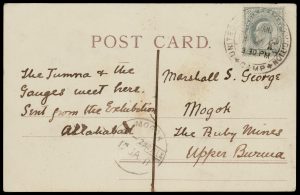 POST CARD.
The Jumna & the
Ganges meet here.
Sent from the Exhibition
Allahabad
Marshall S. George
Mogok
The Ruby Mines
Upper Burma
3.30 PM
CAMP